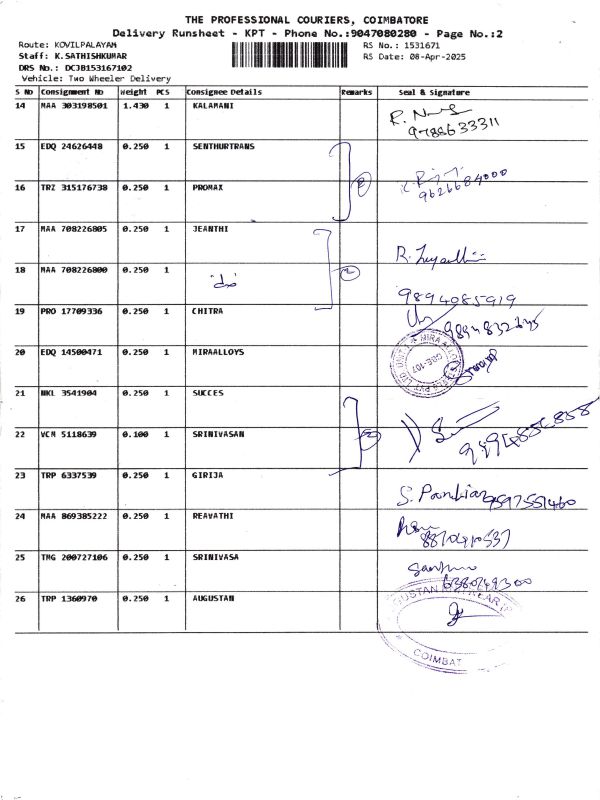 THE PROFESSIONAL COURIERS, COIMBATORE
Delivery Runsheet - KPT - Phone No.:9047080280 - Page No.:2
Route: KOVILPALAYAM
RS No.: 1531671
Staff: K.SATHISHKUMAR
RS Date: 08-Apr-2025
DRS No.: DCJB153167102
Vehicle: Two Wheeler Delivery
S No Consignment No Weight PCS Consignee Details Remarks Seal & Signature
14 MAA 303198501 1.430 1 KALAMANI
9788633311
15 EDQ 24626448 0.250 1 SENTHURTRANS
16 TRZ 315176738 0.250 1 PROMAX
2
9626684000
17 MAA 708226805 0.250 1 JEANTHI
18 MAA 708226800 0.250 1
2
9894085919
19 PRO 17709336 0.250 1 CHITRA
20 EDQ 14500471 0.250 1 MIRAALLOYS
21 NKL 3541904 0.250 1 SUCCES
22 VCM 5118639 0.100 1 SRINIVASAN
2
23 TRP 6337539 0.250 1 GIRIJA
S. Pandian 9597551460
24 MAA 869385222 0.250 1 REAVATHI
25 TMG 200727106 0.250 1 SRINIVASA
26 TRP 1360970 0.250 1 AUGUSTAN
COIMBAT